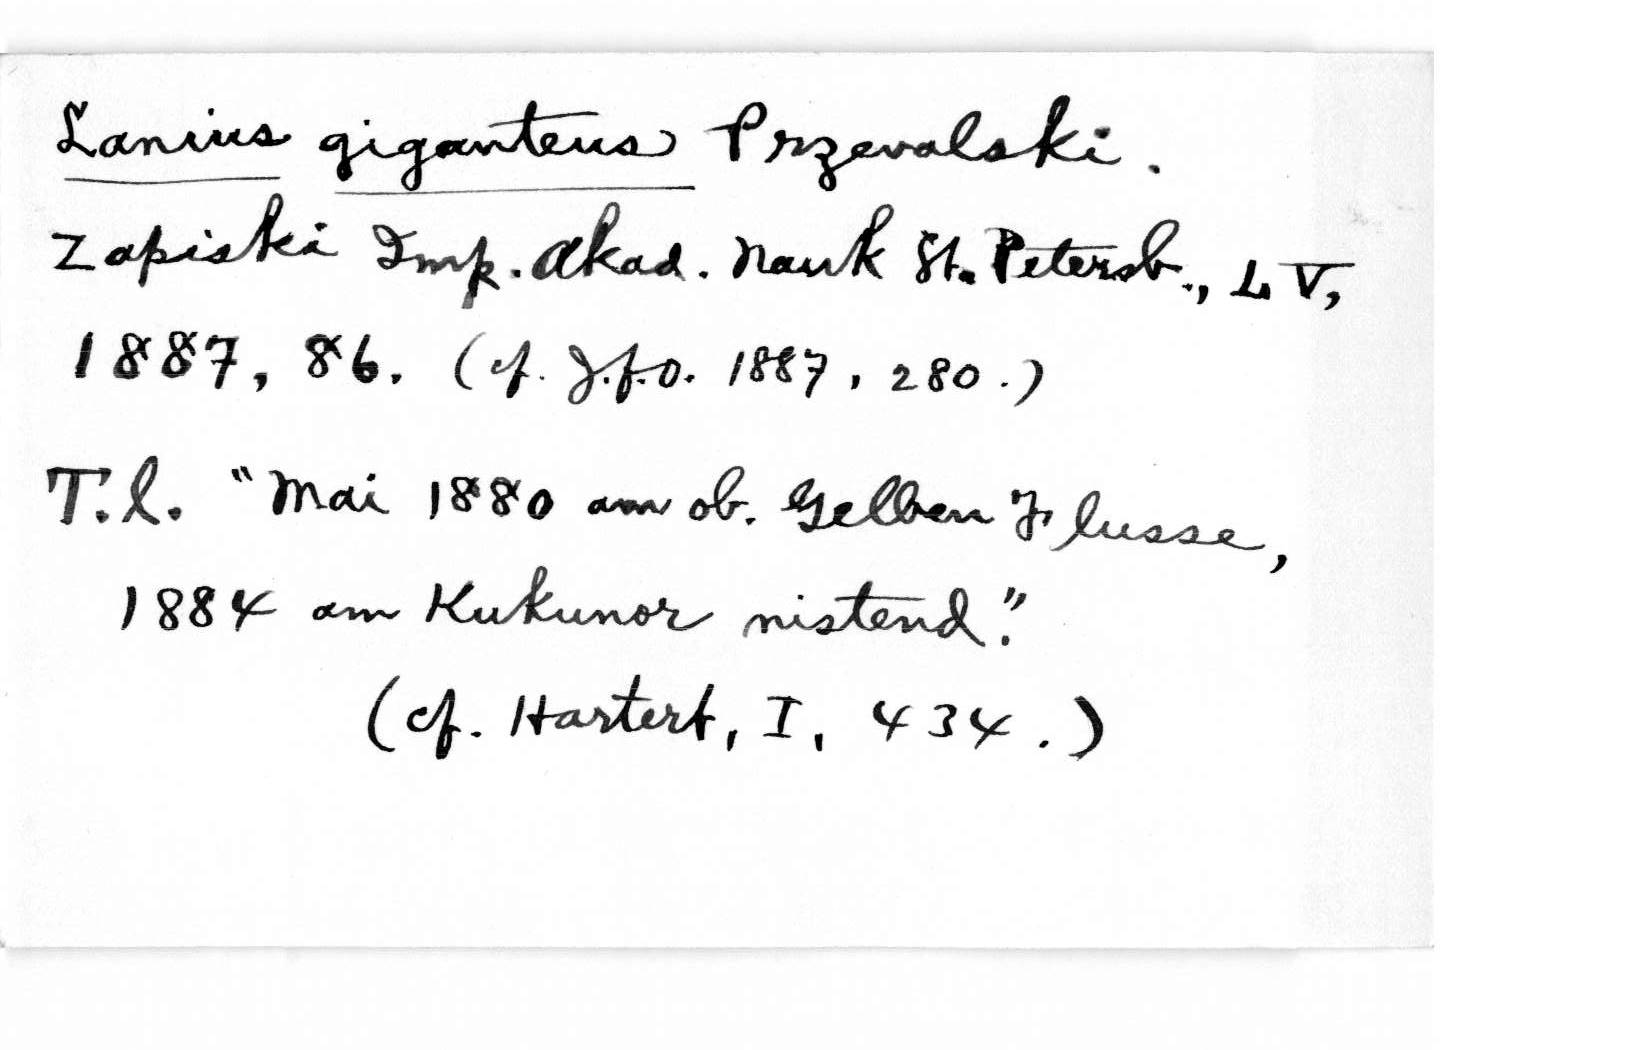 Lanius giganteus Przevalski.
Zapiski Imp. Akad. Nauk St. Petersb., LV,
1887, 86. (cf. J.f.O. 1887, 280.)
T.l. "Mai 1880 am ob. Gelben Flusse,
1884 am Kukunor nistend."
(cf. Hartert, I, 434.)